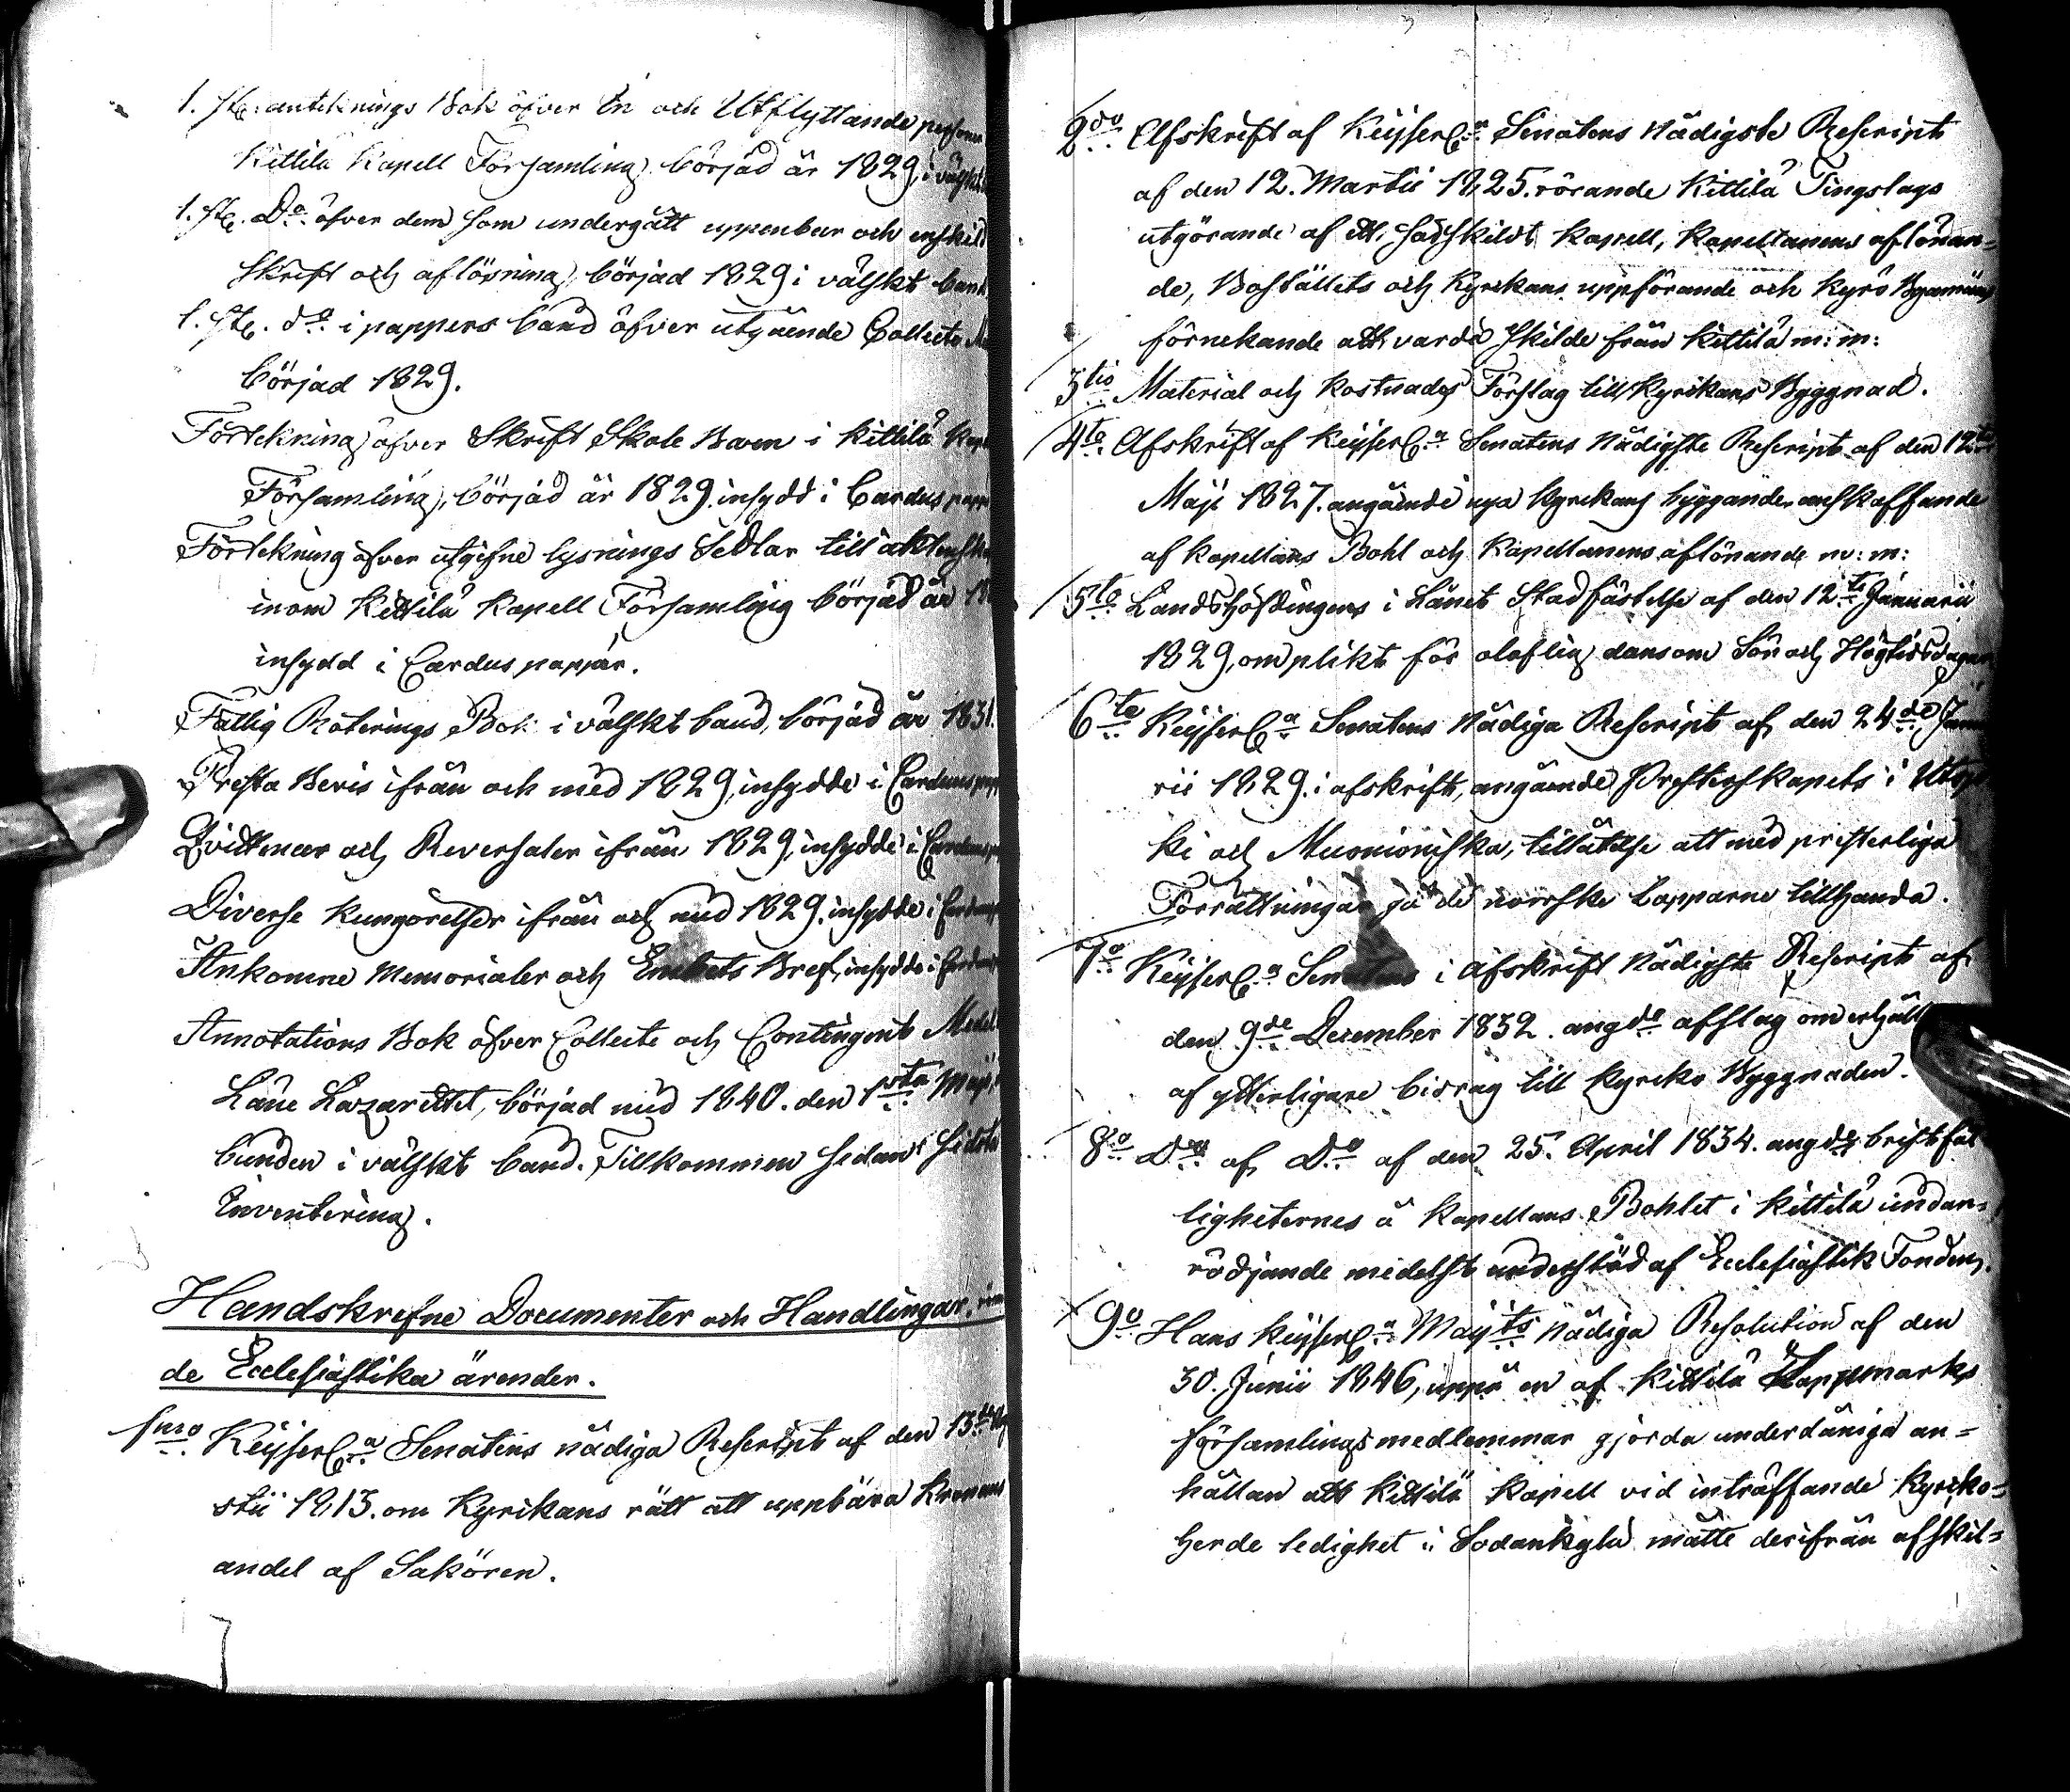 1. st. anteknings Bok öfver In och Utflyttande persone
Kittilä Kapell Församling, börjad år 1829, i välskt
1. st. Do öfver dem som undergått uppenbar och enskild
skrift och aflösning, börjad 1829 i välskt band
1. st. do i pappers band öfver utgående Collecte Me
börjad 1829.
Förtekning öfver Skrift Skole Barn i Kittilä Kape
Församling, börjad år 1829. insydd i Cardus papp
Förtekning öfver utgifne lysnings Sedlar till äktenska
inom Kittilä Kapell Församling börjad år 18
insydd i Cardus papper.
Fattig Roterings Bok i välskt band, börjad år 1831.
Presta Bevis ifrån och med 1829, insydde i Cardus papp
Qvittencer och Reversaler ifrån 1829, insydde i Cardus p
Diverse Kungörelser ifrån och med 1829. insydde i Cardus
Ankomne Memorialer och Embets Bref, insydde i Cardus
Annotations Bok öfver Collecte och Contingent Medel
Läne Lazarettet, börjad med 1840. den 1sta Maji
bunden i välskt band. Tillkommen sedan sidsta
Inventering.
Handskrefne Documenter och Handlingar, rör
de Ecclesiastika ärender.
1mo Keijserla Senatens nådiga Rescript af den 13de
stii 1813. om Kyrikans rätt att uppbära Kronans
andel af Sakören.
2do Afskrift af Keijserla Senatens Nådigste Rescript
af den 12. Martii 1825. rörande Kittilä Tingslags
utgörande af ett särskildt Kapell, Kapellanens aflönan=
de, Boställets och Kyrikans uppförande och Kyrö Byamäns
förnekande att varda skilde från Kittilä m: m:
3tio Material och Kostnads Förslag till Kyrikans Byggnad.
4to Afskrift af Keijserla Senatens Nådigste Rescript af den 12te
Maji 1827. angående nya Kyrikans byggande, anskaffande
af Kapellans Bohl och Kapellanens aflönande m: m:
5to Landshöfdingens i Länet Stadfästelse af den 12te Januarii
1829, om plikt för oloflig dans om Sön och Högtidsdagar
6to Keijserla Senatens Nådiga Rescript af den 24de Janua
rii 1829. i afskrift, angående Presterskapets i Utsjo
ki och Muonioniska, tillåtelse att med presterliga
Förrättningar gå de norrske Lapparne tillhanda.
7o Keijserla Senatens i afskrift Nådigste Rescript af
den 9de December 1832. angde afslag om erhåll
af ytterligare bidrag till Kyriko Byggnaden.
8o Do af Do af den 25. April 1834. angde bristfäl
ligheternes å Kapellans Bohlet i Kittilä undan=
rödjande medelst understöd af Ecclesiastik Fonden.
9o Hans Keijserla Majts Nådiga Resolution af den
30. Junii 1846, uppå en af Kittilä Lappmarks
församlings medlemmar gjorda underdåniga an=
hållan att Kittilä Kapell vid inträffande Kyrko=
herde ledighet i Sodankylä måtte derifrån afskil=